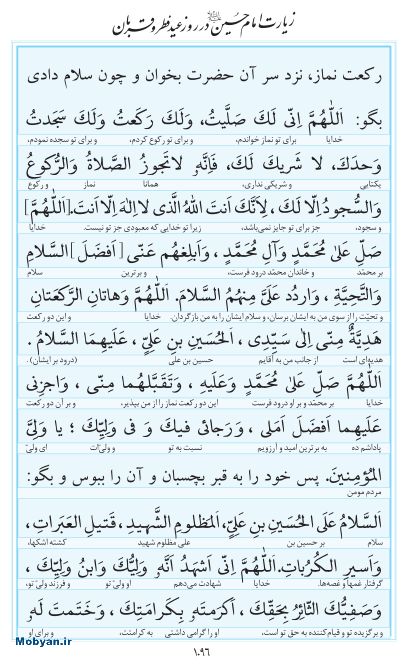 زیارت امام حسین علیه السلام در روز عید فطر و قربان
رکعت نماز، نزد سر آن حضرت بخوان و چون سلام دادی
بگو: اَللّٰهُمَّ اِنّی لَكَ صَلَّیتُ، وَلَكَ رَكَعتُ وَلَكَ سَجَدتُ
خدایا برای تو نماز خواندم، و برای تو رکوع کردم، و برای تو سجده نمودم،
وَحدَكَ، لا شَریكَ لَكَ، فَاِنَّهُ لاتَجوزُ الصَّلاةُ وَالرُّكوعُ
یکتایی و شریکی نداری، همانا نماز و رکوع
وَالسُّجودُ اِلّا لَكَ، لِاَنَّكَ اَنتَ اللهُ الَّذی لا اِلٰهَ اِلّا اَنتَ، [اَللّٰهُمَّ]
و سجود، جز برای تو جایز نمی‌باشد، زیرا تو خدایی که معبودی جز تو نیست. خدایا
صَلِّ عَلیٰ مُحَمَّدٍ وَآلِ مُحَمَّدٍ، وَاَبلِغهُم عَنّی [اَفضَلَ] السَّلامِ
بر محمّد و خاندان محمّد درود فرست، و برترین سلام
وَالتَّحِیَّةِ، وَاردُد عَلَیَّ مِنهُمُ السَّلامَ. اَللّٰهُمَّ وَهاتانِ الرَّكعَتانِ
و تحیّت را از سوی من به ایشان برسان، و سلام ایشان را به من بازگردان. خدایا و این دو رکعت
هَدِیَّةٌ مِنّی اِلیٰ سَیِّدِی، اَلحُسَینِ بنِ عَلِیٍّ، عَلَیهِمَا السَّلامُ.
هدیه‌ای است از جانب من به آقایم حسین بن علی (درود بر ایشان).
اَللّٰهُمَّ صَلِّ عَلیٰ مُحَمَّدٍ وَعَلَیهِ، وَتَقَبَّلهُما مِنّی، وَاجزِنی
خدایا بر محمّد و بر او درود فرست این دو رکعت نماز را از من بپذیر، و بر آن دو رکعت
عَلَیهِما اَفضَلَ اَمَلی، وَرَجائی فیكَ وَ فی وَلِیِّكَ؛ یا وَلِیَّ
پاداشم ده به برترین امید و آرزویم نسبت به تو و ولیّ‌ات ای ولیّ
المُؤمِنینَ. پس خود را به قبر بچسبان و آن را ببوس و بگو:
مردم مومن
اَلسَّلامُ عَلَی الحُسَینِ بنِ عَلِیٍّ، اَلمَظلومِ الشَّهیدِ، قَتیلِ العَبَراتِ،
سلام بر حسین بن علی مظلوم شهید کشته اشکها،
وَاَسیرِ الكُرُباتِ. اَللّٰهُمَّ اِنّی اَشهَدُ اَنَّهُ وَلِیُّكَ وَابنُ وَلِیِّكَ،
گرفتار غمها و غصه‌ها. خدایا شهادت می‌دهم او ولیّ تو و فرزند ولیّ تو،
وَصَفِیُّكَ الثّائِرُ بِحَقِّكَ، اَكرَمتَهُ بِكَرامَتِكَ، وَخَتَمتَ لَهُ
و برگزیده تو و قیام‌کننده به حق تو است، او را گرامی داشتی به کرامتت، و برای او
۱۰۹۶
Mobyan.ir